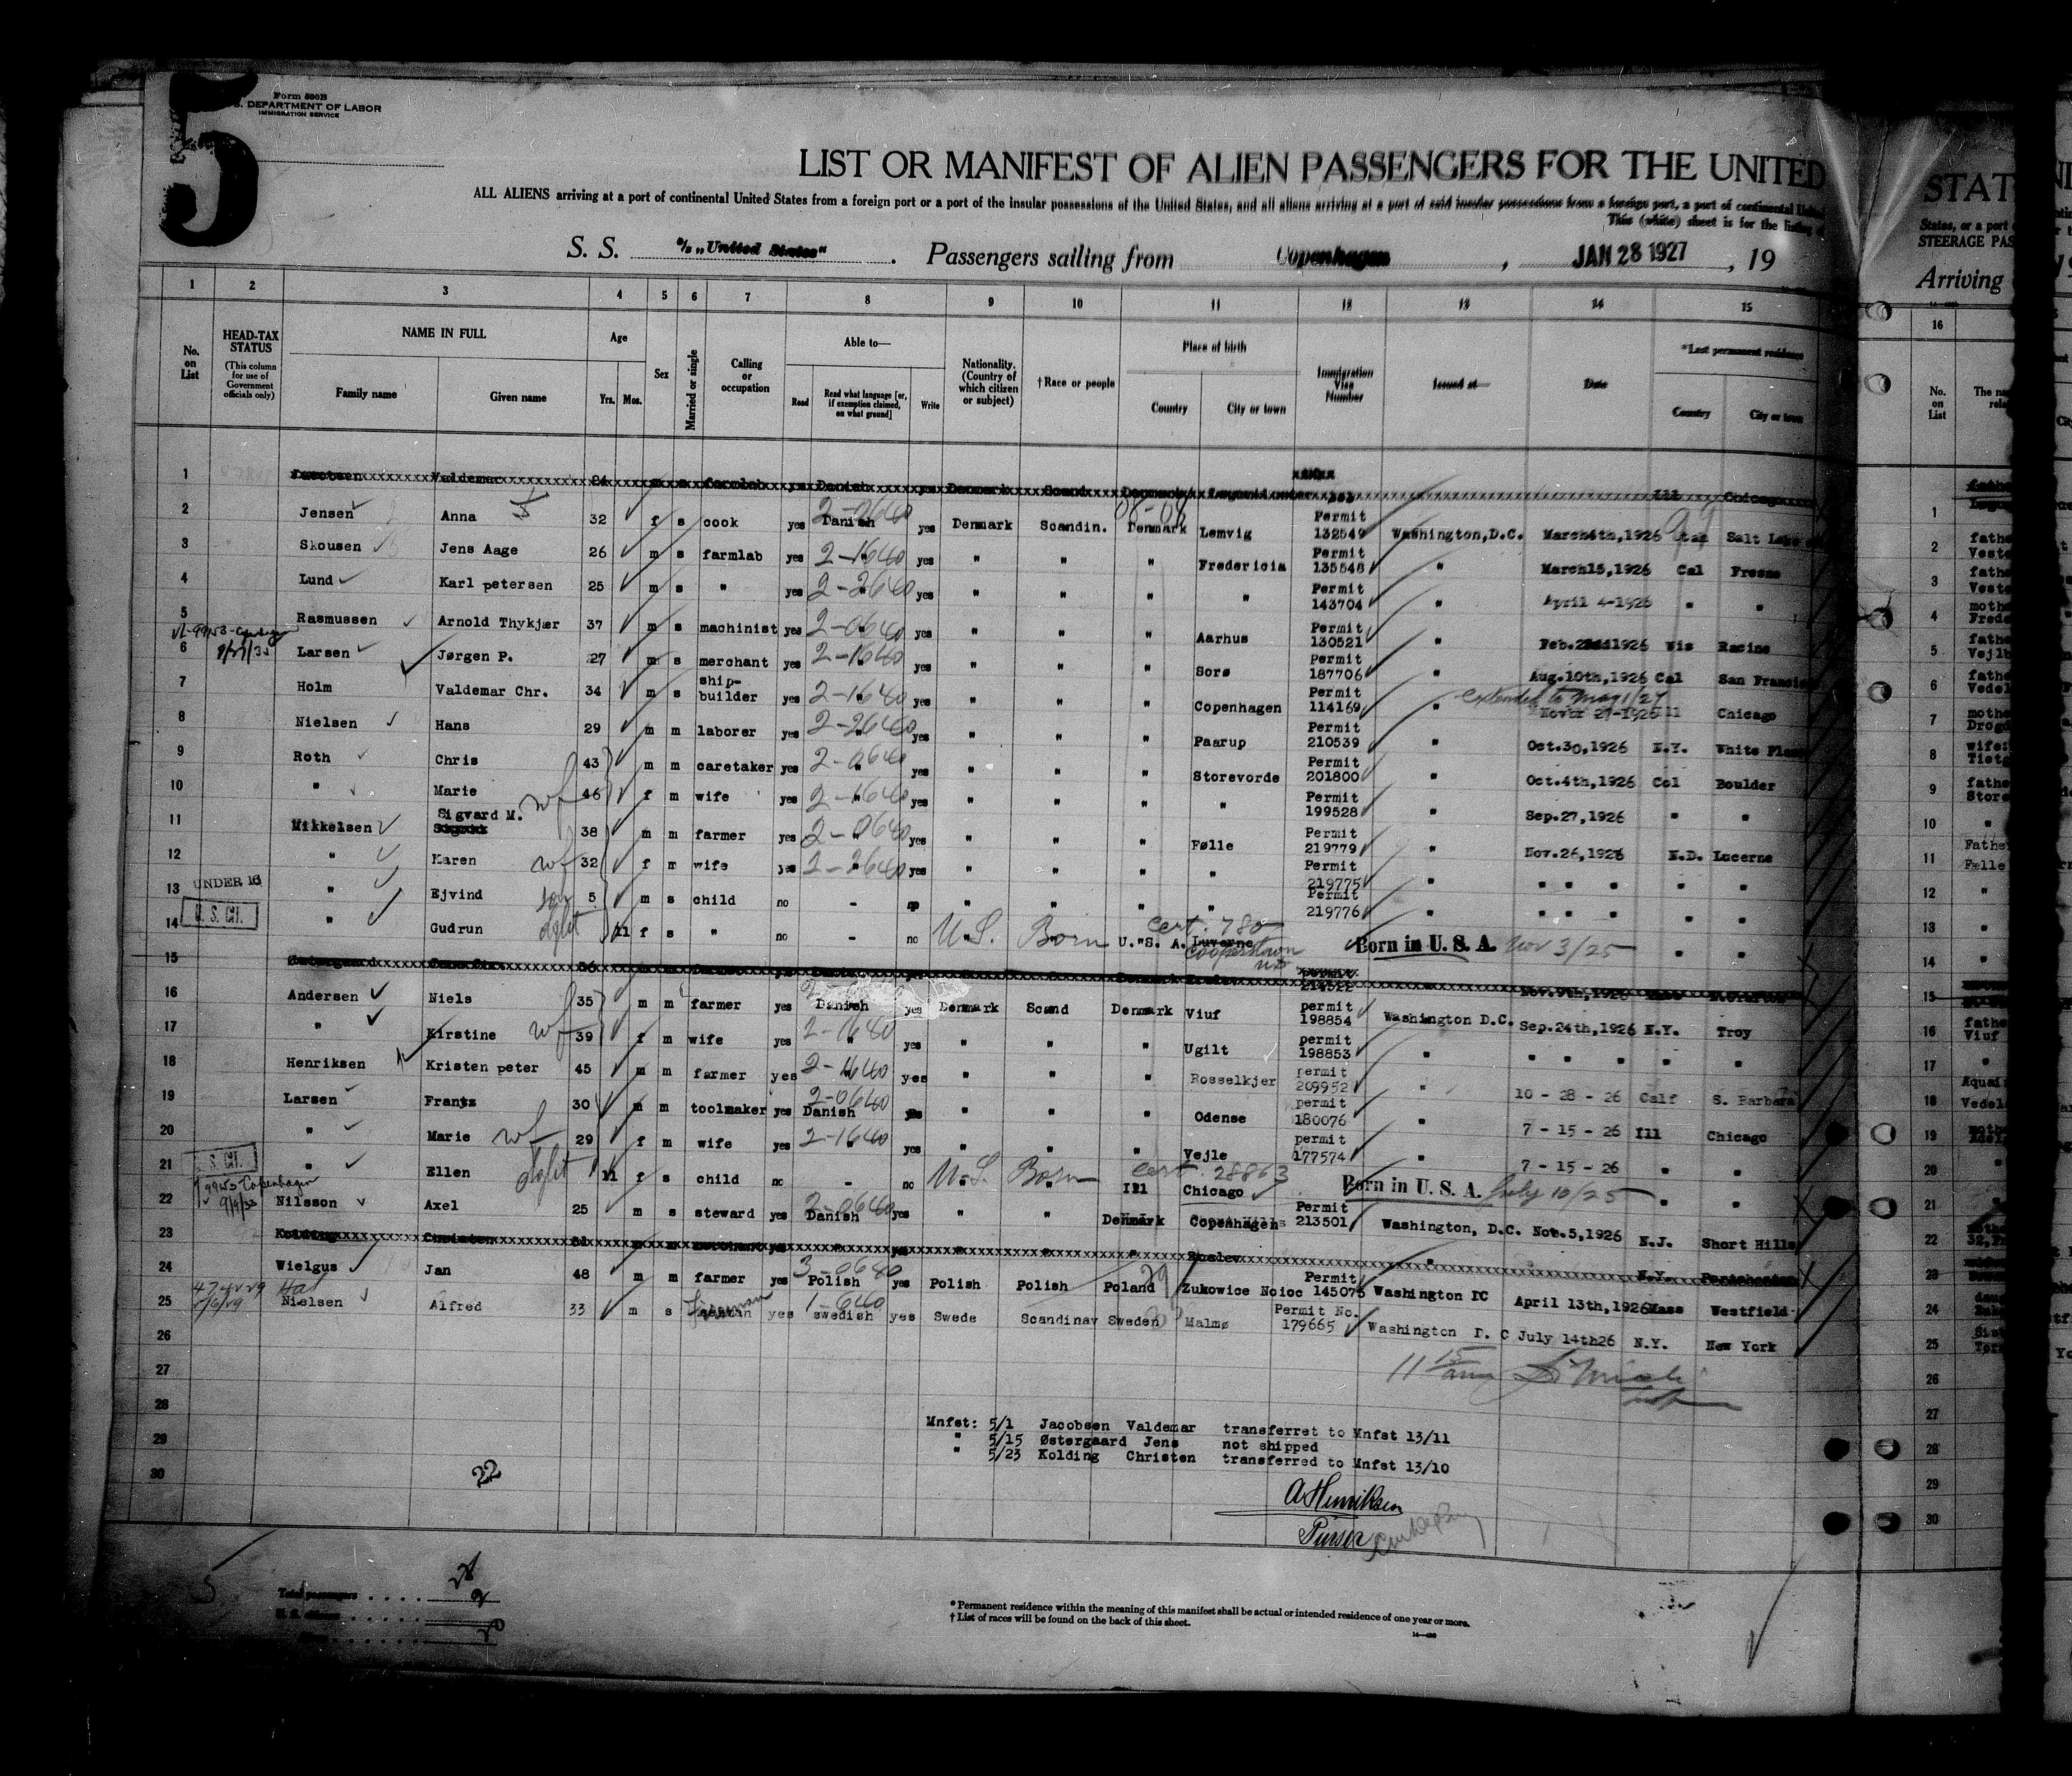 5
Form 500B
U.S. DEPARTMENT OF LABOR
IMMIGRATION SERVICE
LIST OR MANIFEST OF ALIEN PASSENGERS FOR THE UNITED
ALL ALIENS arriving at a port of continental United States from a foreign port or a port of the insular possessions of the United States, and all aliens arriving at a port of said insular possessions from a foreign port, a port of continental United
This (white) sheet is for the listing of
S. S. S/S „United States" . Passengers sailing from Copenhagen , JAN 28 1927 , 19
1 2 3 4 5 6 7 8 9 10 11 12 13 14 15
No. on List
HEAD-TAX STATUS
(This column for use of Government officials only)
NAME IN FULL
Family name
Given name
Age
Yrs. Mos.
Sex
Married or single
Calling or occupation
Able to—
Read
Read what language [or, if exemption claimed, on what ground]
Write
Nationality. (Country of which citizen or subject)
†Race or people
Place of birth
Country
City or town
Immigration Visa Number
Issued at—
Date
*Last permanent residence
Country
City or town
1 Valdemar 24 m s farmlab yes Danish yes Denmark Scand Denmark Ill Chicago
2 Jensen Anna 32 f s cook yes Danish 2-0640 yes Denmark Scandin. Denmark Lemvig Permit 132549 Washington,D.C. March4th,1926 Salt Lake
3 Skousen Jens Aage 26 m s farmlab yes " 2-1640 yes " " " Fredericia Permit 135548 " March15,1926 Cal Fresno
4 Lund Karl petersen 25 m s " yes " 2-2640 yes " " " " Permit 143704 " April 4-1926 " "
5 Rasmussen Arnold Thykjær 37 m s machinist yes " 2-0640 yes " " " Aarhus Permit 130521 " 1926 Wis Racine
6 Larsen Jørgen P. 27 m s merchant yes " 2-1640 yes " " " Sorø Permit 187706 " Aug.10th,1926 Cal San Francis
7 Holm Valdemar Chr. 34 m s ship-builder yes " 2-1640 yes " " " Copenhagen Permit 114169 " extended to May 1/27 Chicago
8 Nielsen Hans 29 m m laborer yes " 2-2640 yes " " " Paarup Permit 210539 " Oct.30,1926 N.Y. White Plain
9 Roth Chris 43 m m caretaker yes " 2-0640 yes " " " Storevorde Permit 201800 " Oct.4th,1926 Col Boulder
10 " Marie wf 46 f m wife yes " 2-1640 yes " " " " Permit 199528 " Sep.27,1926 " "
11 Mikkelsen Sigvard M. 38 m m farmer yes " 2-0640 yes " " " Følle Permit 219779 " Nov.26,1926 N.D. Lucerne
12 " Karen wf 32 f m wife yes " 2-2640 yes " " " " Permit 219775 " " " " " "
13 UNDER 16 " Ejvind son 5 m s child no - no " " " " Permit 219776 " " " " " "
14 U. S. CIT. " Gudrun dght 11 f s " no - no U.S. Born U. S. A. Luverne cert. 780 Cooperstown Born in U. S. A. Nov 3/25 " "
15
16 Andersen Niels 35 m m farmer yes Danish yes Denmark Scand Denmark Viuf permit 198854 Washington D.C. Sep.24th,1926 N.Y. Troy
17 " Kirstine wf 39 f m wife yes " 2-1640 yes " " " Ugilt permit 198853 " " " " " "
18 Henriksen Kristen peter 45 m m farmer yes " 2-1640 yes " " " Rosselkjer permit 209952 " 10 - 28 - 26 Calf S. Barbara
19 Larsen Frantz 30 m m toolmaker yes Danish 2-0640 yes " " " Odense permit 180076 " 7 - 15 - 26 Ill Chicago
20 " Marie wf 29 f m wife yes " 2-1640 yes " " " Vejle permit 177574 " 7 - 15 - 26 " "
21 U. S. CIT. " Ellen dght 11 f s child no - no U.S. Born Ill Chicago cert. 28863 Born in U. S. A. July 10/25 " "
22 Nilsson Axel 25 m s steward yes Danish 2-0640 yes " " Denmark Copenhagen Permit 213501 Washington, D.C. Nov.5,1926 N.J. Short Hills
23 Kolding Christen 31 m m merchant yes " yes " " " " N.Y.
24 Wielgus Jan 48 m m farmer yes Polish 3-0680 yes Polish Polish Poland Zukowice Noioc Permit 145075 Washington DC April 13th,1926 Mass Westfield
25 Nielsen Alfred 33 m s fireman yes swedish 1-640 yes Swede Scandinav Sweden Malmø Permit No. 179665 Washington D. C July 14th26 N.Y. New York
26
27
28
29
30
22
Mnfst: 5/1 Jacobsen Valdemar transferret to Mnfst 13/11
" 5/15 Østergaard Jens not shipped
" 5/23 Kolding Christen transferred to Mnfst 13/10
A Henriksen
Purser
Total passengers
U. S. citizens
* Permanent residence within the meaning of this manifest shall be actual or intended residence of one year or more.
† List of races will be found on the back of this sheet.
STAT
States, or a port
STEERAGE PAS
Arriving
16
No. on List